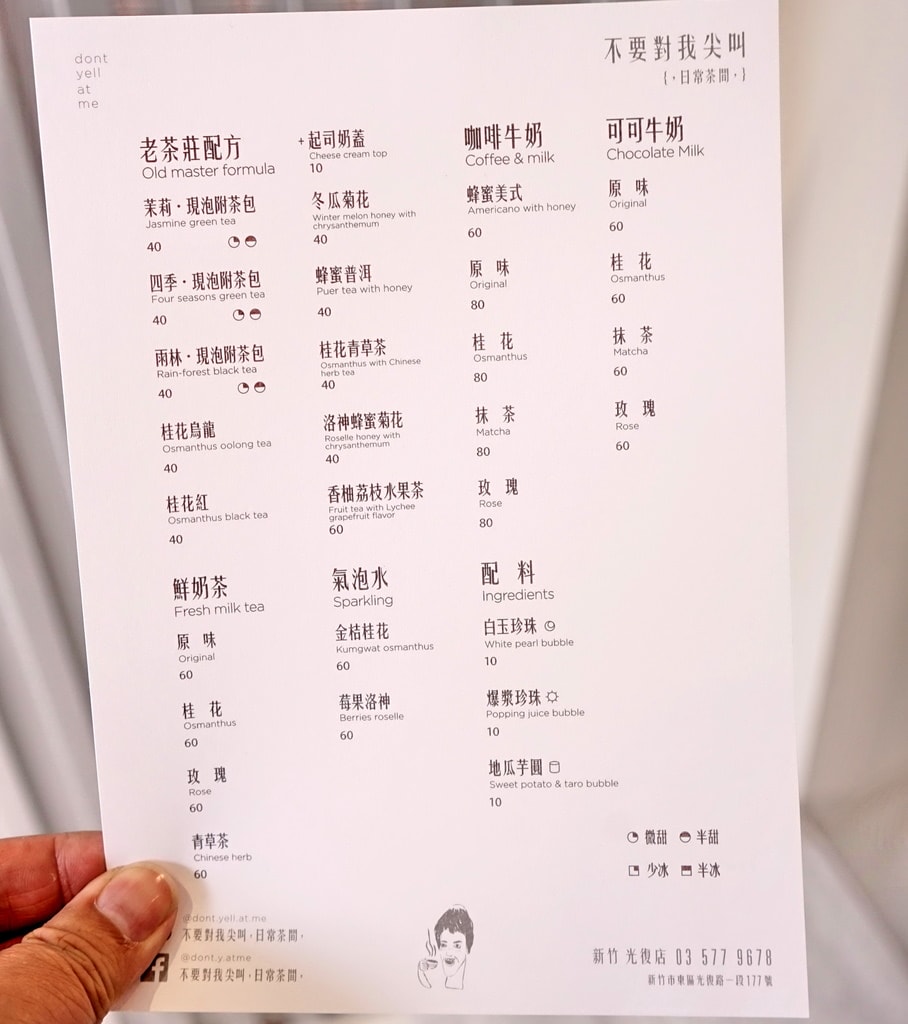 dont
yell
at
me
不要對我尖叫
{，日常茶間，}
老茶莊配方
Old master formula
茉莉・現泡附茶包
Jasmine green tea
40
四季・現泡附茶包
Four seasons green tea
40
雨林・現泡附茶包
Rain-forest black tea
40
桂花烏龍
Osmanthus oolong tea
40
桂花紅
Osmanthus black tea
40
+ 起司奶蓋
Cheese cream top
10
冬瓜菊花
Winter melon honey with
chrysanthemum
40
蜂蜜普洱
Puer tea with honey
40
桂花青草茶
Osmanthus with Chinese
herb tea
40
洛神蜂蜜菊花
Roselle honey with
chrysanthemum
40
香柚荔枝水果茶
Fruit tea with Lychee
grapefruit flavor
60
咖啡牛奶
Coffee & milk
蜂蜜美式
Americano with honey
60
原 味
Original
80
桂 花
Osmanthus
80
抹 茶
Matcha
80
玫 瑰
Rose
80
可可牛奶
Chocolate Milk
原 味
Original
60
桂 花
Osmanthus
60
抹 茶
Matcha
60
玫 瑰
Rose
60
鮮奶茶
Fresh milk tea
原 味
Original
60
桂 花
Osmanthus
60
玫 瑰
Rose
60
青草茶
Chinese herb
60
氣泡水
Sparkling
金桔桂花
Kumgwat osmanthus
60
莓果洛神
Berries roselle
60
配 料
Ingredients
白玉珍珠
White pearl bubble
10
爆漿珍珠
Popping juice bubble
10
地瓜芋圓
Sweet potato & taro bubble
10
微甜 半甜
少冰 半冰
@dont.yell.at.me
不要對我尖叫，日常茶間，
@dont.y.atme
不要對我尖叫，日常茶間，
新竹 光復店 03 577 9678
新竹市東區光復路一段177號